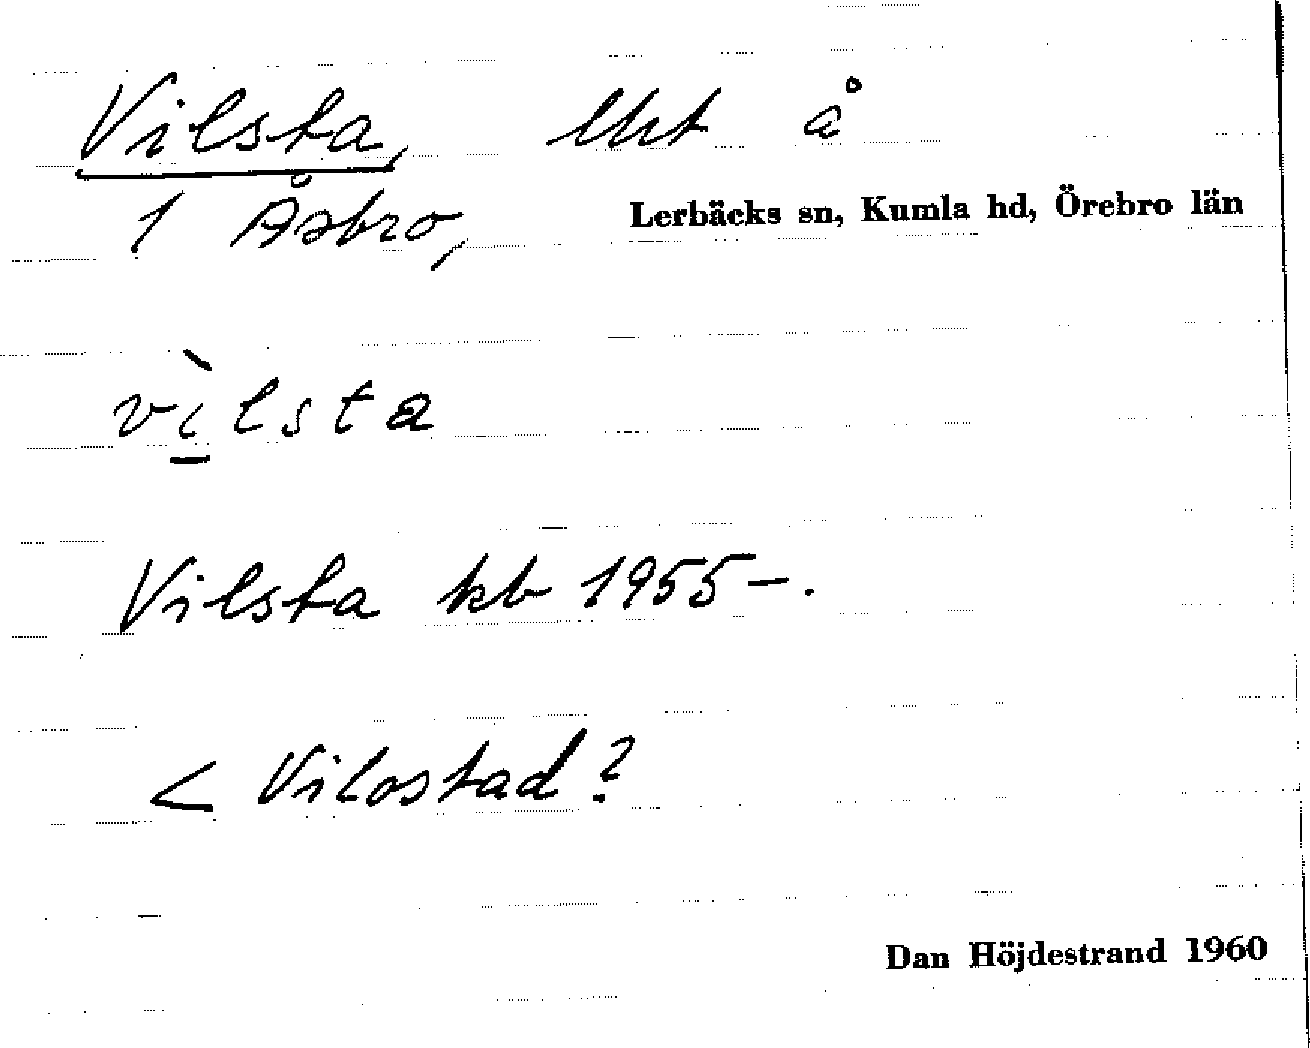 Vilsta, lht å
1 Åsbro, Lerbäcks sn, Kumla hd, Örebro län
vìlsta
Vilsta kb 1955-.
< Vilostad?
Dan Höjdestrand 1960